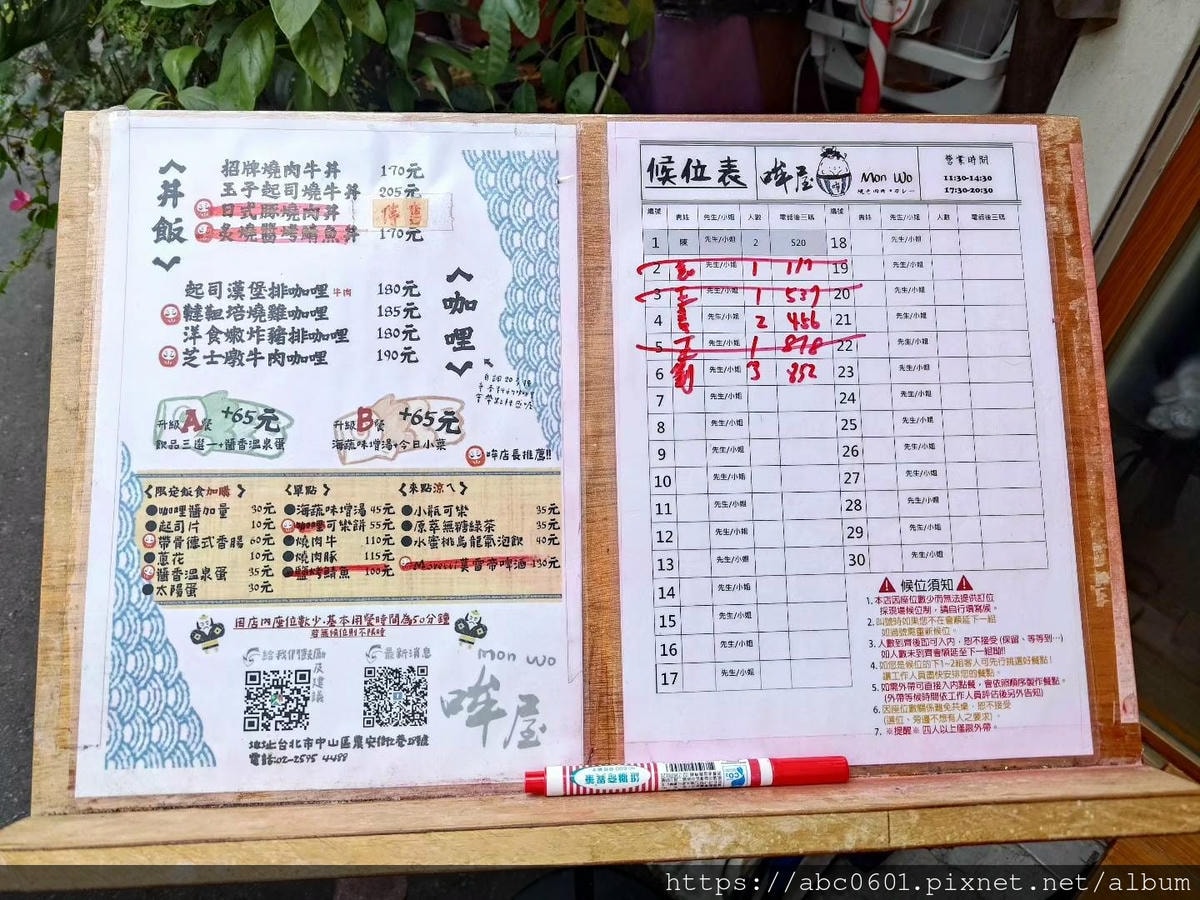 丼飯
招牌燒肉牛丼 170元
玉子起司燒牛丼 205元
日式豚燒肉丼 停售
炙燒醬烤鯖魚丼 170元
咖哩
起司漢堡排咖哩 牛肉 180元
韃靼培燒雞咖哩 185元
洋食嫩炸豬排咖哩 180元
芝士燉牛肉咖哩 190元
升級A餐 +65元
飲品三選一+醬香溫泉蛋
升級B餐 +65元
海蔬味增湯+今日小菜
哞店長推薦!!
《限定飯食加購》
咖哩醬加量 30元
起司片 10元
帶骨德式香腸 60元
蔥花 10元
醬香溫泉蛋 35元
太陽蛋 30元
《單點》
海蔬味增湯 45元
咖哩可樂餅 55元
燒肉牛 110元
燒肉豚 115元
鹽烤鯖魚 100元
《來點涼ㄟ》
小瓶可樂 35元
原萃無糖綠茶 35元
水蜜桃烏龍氣泡飲 40元
Moretti莫雷蒂啤酒 130元
因店內座位數少,基本用餐時間為50分鐘
若無候位則不限時
給我們鼓勵及建議
最新消息
mon wo
哞屋
地址:台北市中山區農安街2巷17號
電話:02-2595 4488
候位表
哞屋
Mon Wo
燒き肉丼·カレー
營業時間
11:30-14:30
17:30-20:30
編號 貴姓 先生/小姐 人數 電話後三碼 編號 貴姓 先生/小姐 人數 電話後三碼
1 陳 先生/小姐 2 520 18 先生/小姐
2 先生/小姐 1 117 19 先生/小姐
3 先生/小姐 1 537 20 先生/小姐
4 先生/小姐 2 456 21 先生/小姐
5 王 先生/小姐 1 878 22 先生/小姐
6 劉 先生/小姐 3 852 23 先生/小姐
7 先生/小姐 24 先生/小姐
8 先生/小姐 25 先生/小姐
9 先生/小姐 26 先生/小姐
10 先生/小姐 27 先生/小姐
11 先生/小姐 28 先生/小姐
12 先生/小姐 29 先生/小姐
13 先生/小姐 30 先生/小姐
14 先生/小姐
15 先生/小姐
16 先生/小姐
17 先生/小姐
候位須知
1. 本店因座位數少而無法提供訂位
採現場候位制,請自行填寫候。
2. 叫號時如果您不在會順延下一組
如過號需重新候位。
3. 人數到齊後即可入內,恕不接受(保留、等等到⋯)
如人數未到齊會順延至下一組呦!!
4. 如您是候位的下1~2組客人可先行挑選好餐點!
讓工作人員盡快安排您的餐點。
5. 如需外帶可直接入內點餐,會依照順序製作餐點。
(外帶等候時間依工作人員評估後另外告知)
6. 因座位數關係難免共桌,恕不接受
(選位、旁邊不想有人之要求)。
7. ※提醒※ 四人以上僅限外帶。
https://abc0601.pixnet.net/album